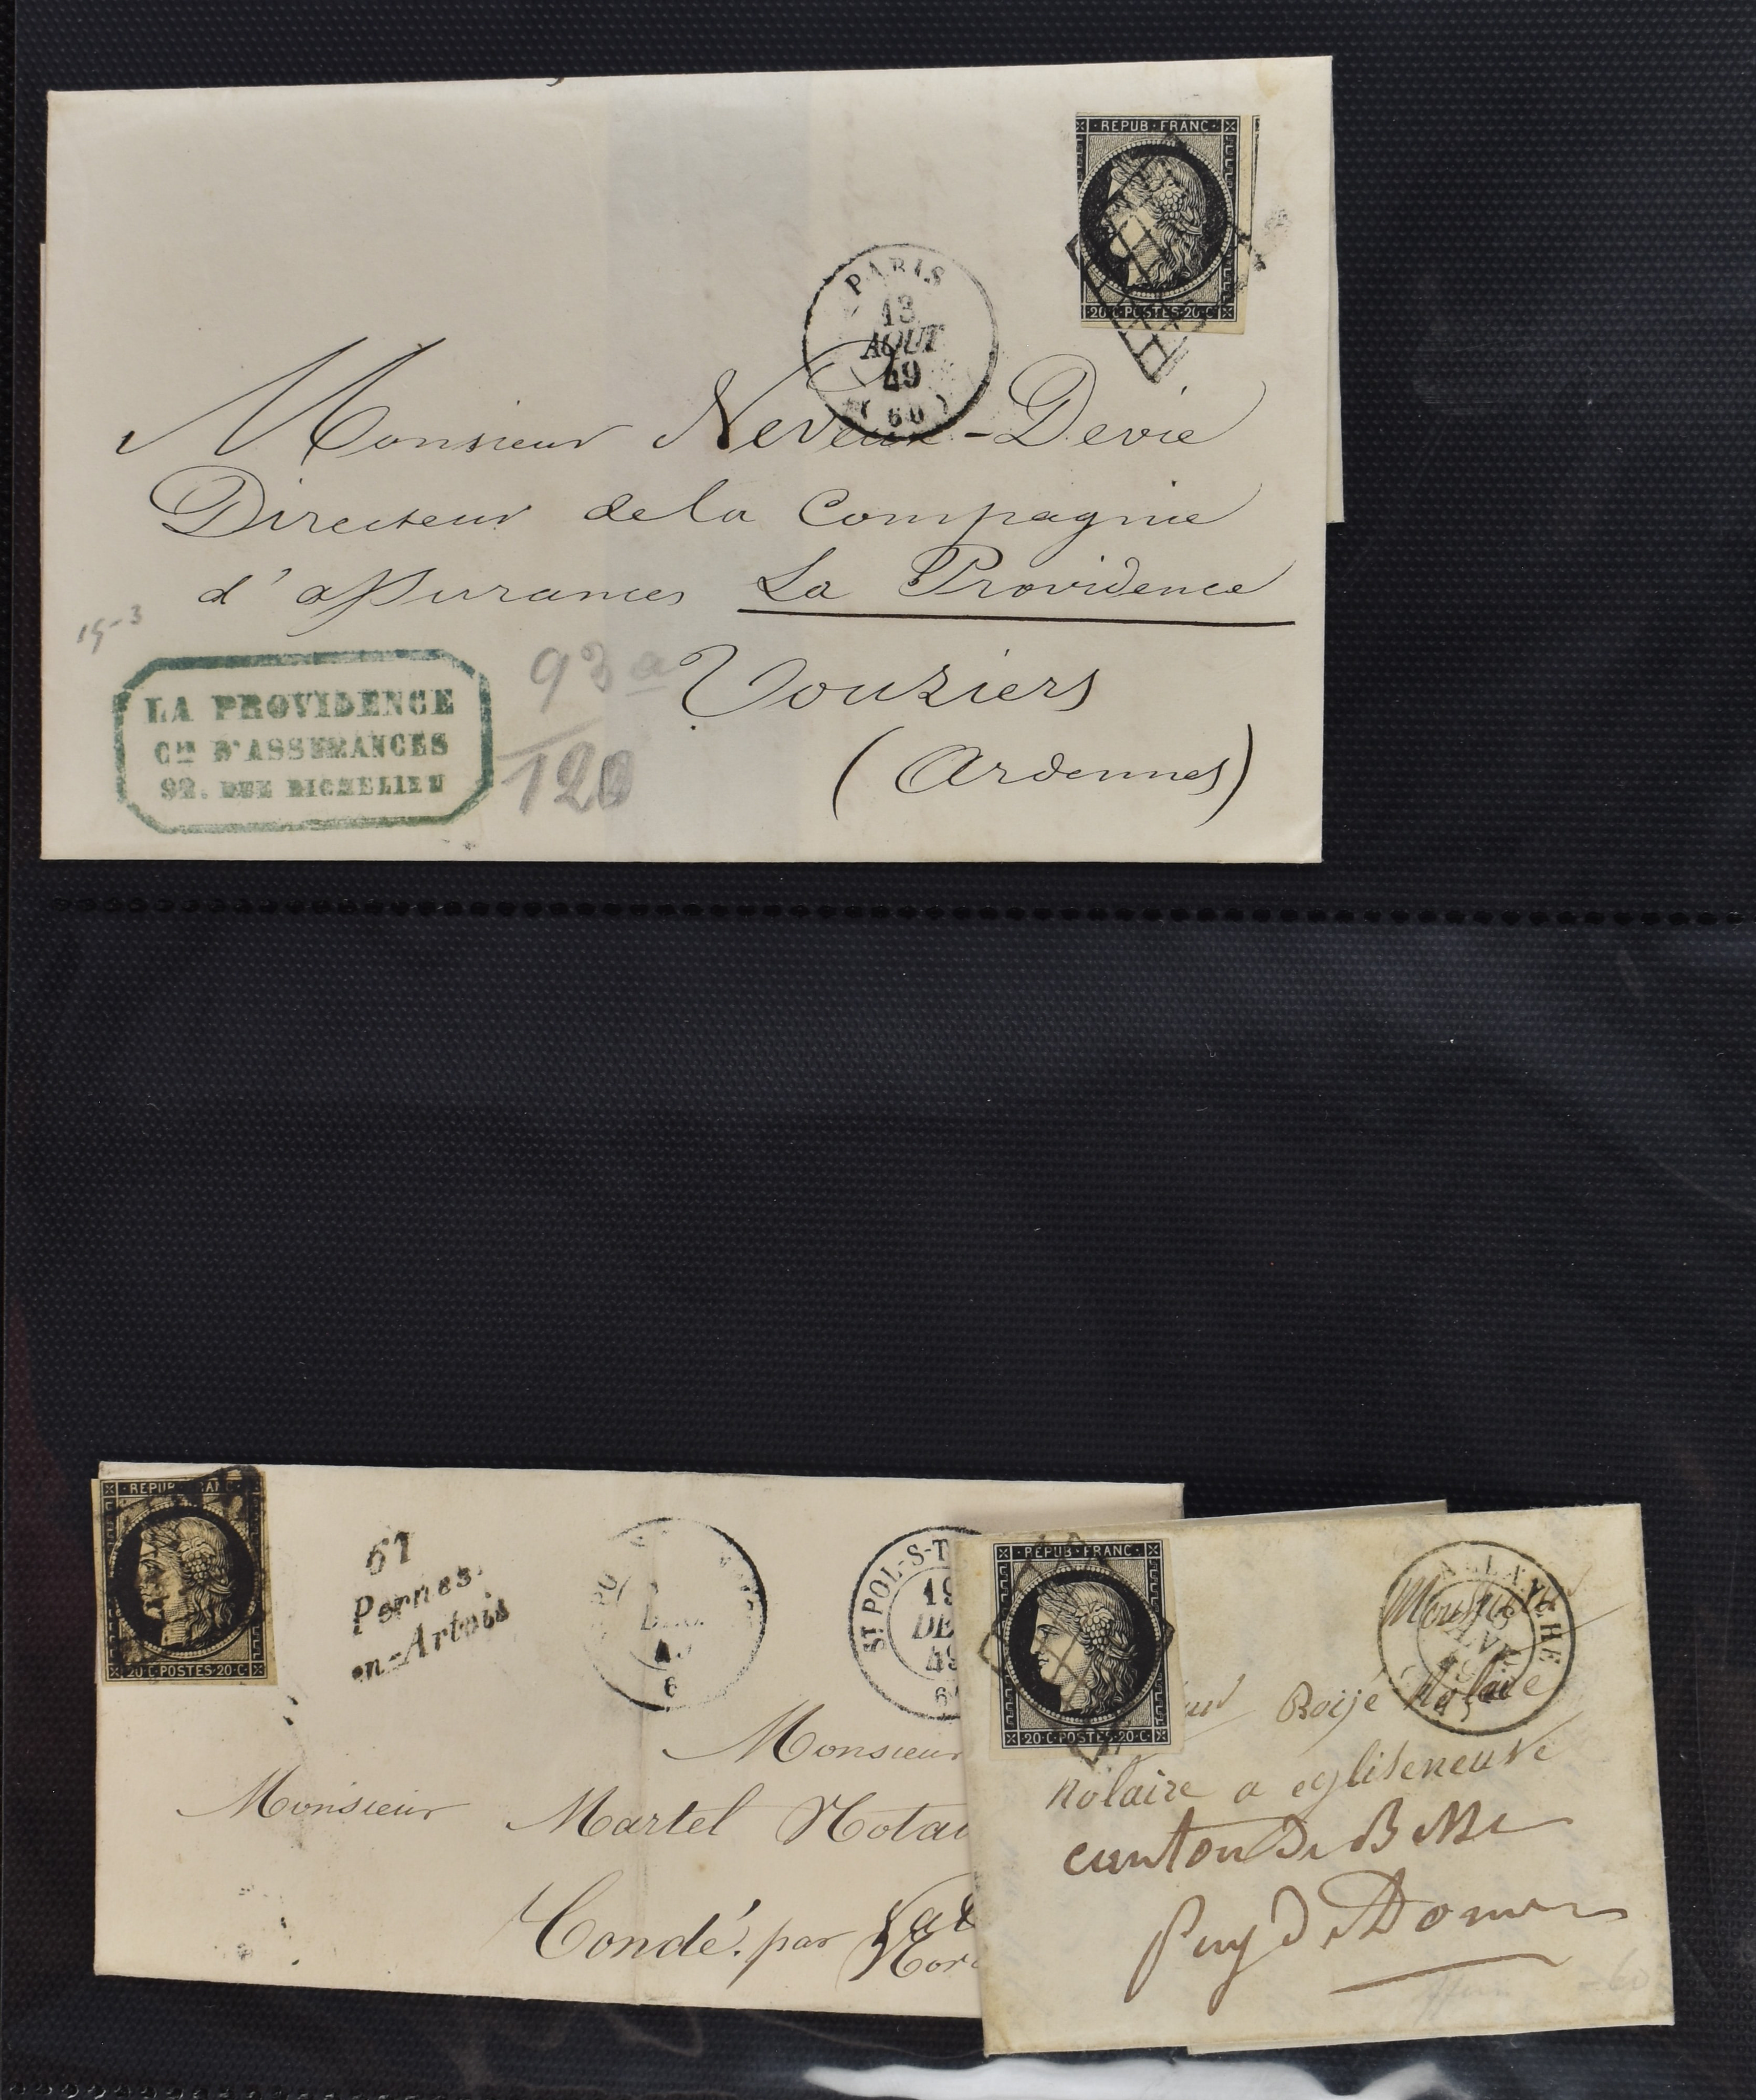 REPUB · FRANC
20 · C · POSTES · 20 · C
PARIS
13
AOUT
49
(60)
Monsieur Neveux-Devie
Directeur de la Compagnie
d'assurances La Providence
15-3
93a
120
Vouziers
(Ardennes)
LA PROVIDENCE
CIE D'ASSURANCES
92. RUE RICHELIEU
REPUB · FRANC
20 · C · POSTES · 20 · C
61
Pernes-
en-Artois
ST POL-S-T
19
DE
49
Monsieur
Monsieur Martel Nota
Condé par Val
Nor
REPUB · FRANC
20 · C · POSTES · 20 · C
ALLANCHE
Boijé Notaire
notaire a egliseneuve
canton De
Puy De Dome